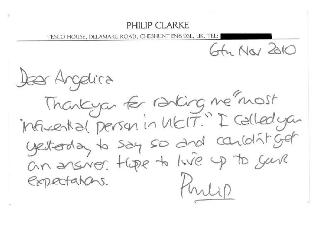 PHILIP CLARKE
TESCO HOUSE, DELAMARE ROAD, CHESHUNT EN8 9SL, UK, TEL:
6th Nov 2010
Dear Angelica
Thankyou for ranking me "most
influential person in UKIT." I called you
yesterday to say so and couldn't get
an answer. Hope to live up to your
expectations.
Philip